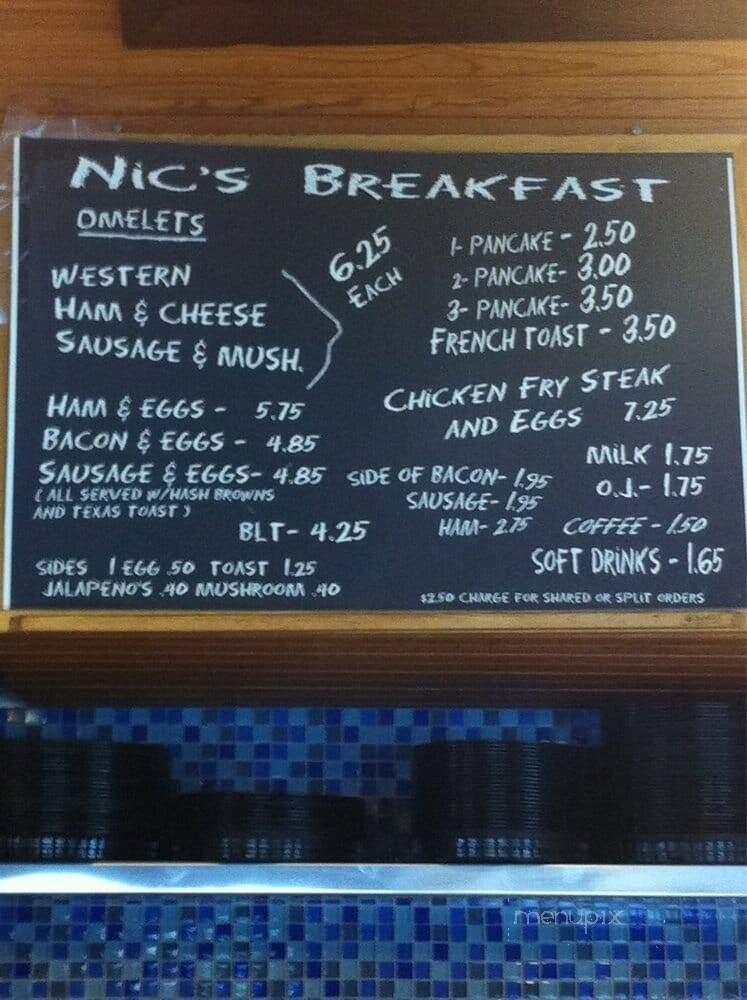 NIC'S BREAKFAST
OMELETS
WESTERN
HAM & CHEESE
SAUSAGE & MUSH.
6.25
EACH
HAM & EGGS - 5.75
BACON & EGGS - 4.85
SAUSAGE & EGGS- 4.85
( ALL SERVED W/HASH BROWNS
AND TEXAS TOAST )
BLT- 4.25
SIDES 1 EGG .50 TOAST 1.25
JALAPENO'S .40 MUSHROOM .40
1- PANCAKE - 2.50
2- PANCAKE- 3.00
3- PANCAKE- 3.50
FRENCH TOAST - 3.50
CHICKEN FRY STEAK
AND EGGS 7.25
MILK 1.75
O.J.- 1.75
SIDE OF BACON- 1.95
SAUSAGE- 1.95
HAM- 2.75
COFFEE - 1.50
SOFT DRINKS - 1.65
$2.50 CHARGE FOR SHARED OR SPLIT ORDERS
menupix